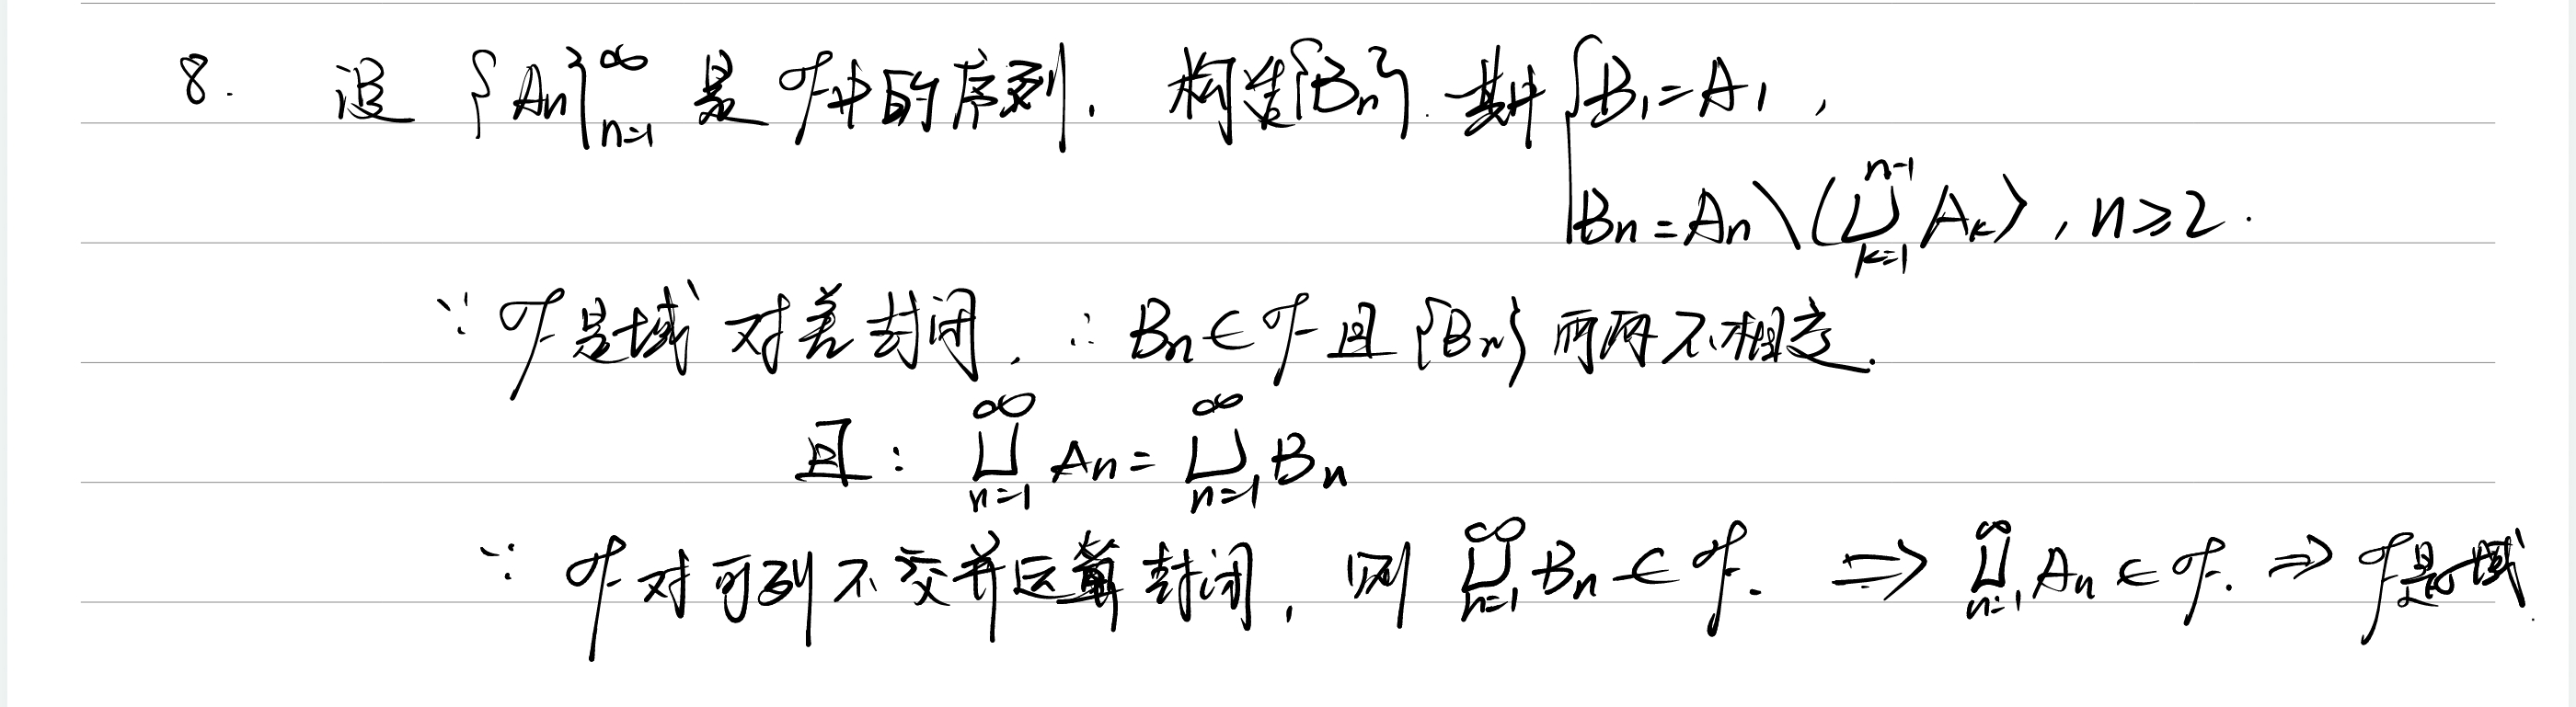 8. 设 {An}_{n=1}^∞ 是 ℱ中的序列. 构造{Bn}. 其中 { B₁=A₁,
Bn=An\(⋃_{k=1}^{n-1} A_k), n≥2.
∵ ℱ是域 对差封闭. ∴ Bn∈ℱ 且 {Bn} 两两不相交.
且: ⋃_{n=1}^∞ An = ⋃_{n=1}^∞ Bn
∵ ℱ对可列不交并运算封闭, 则 ⋃_{n=1}^∞ Bn∈ℱ. ⇒ ⋃_{n=1}^∞ An∈ℱ. ⇒ ℱ是σ域.